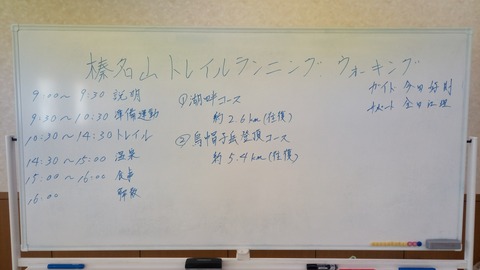 榛名山トレイルランニング. ウォーキング
9:00〜9:30 説明
9:30〜10:30 準備運動
10:30〜14:30 トレイル
14:30〜15:00 温泉
15:00〜16:00 食事
16:00 解散
①湖畔コース
約2.6km(往復)
②烏帽子岳登頂コース
約5.4km(往復)
ガイド
サポート